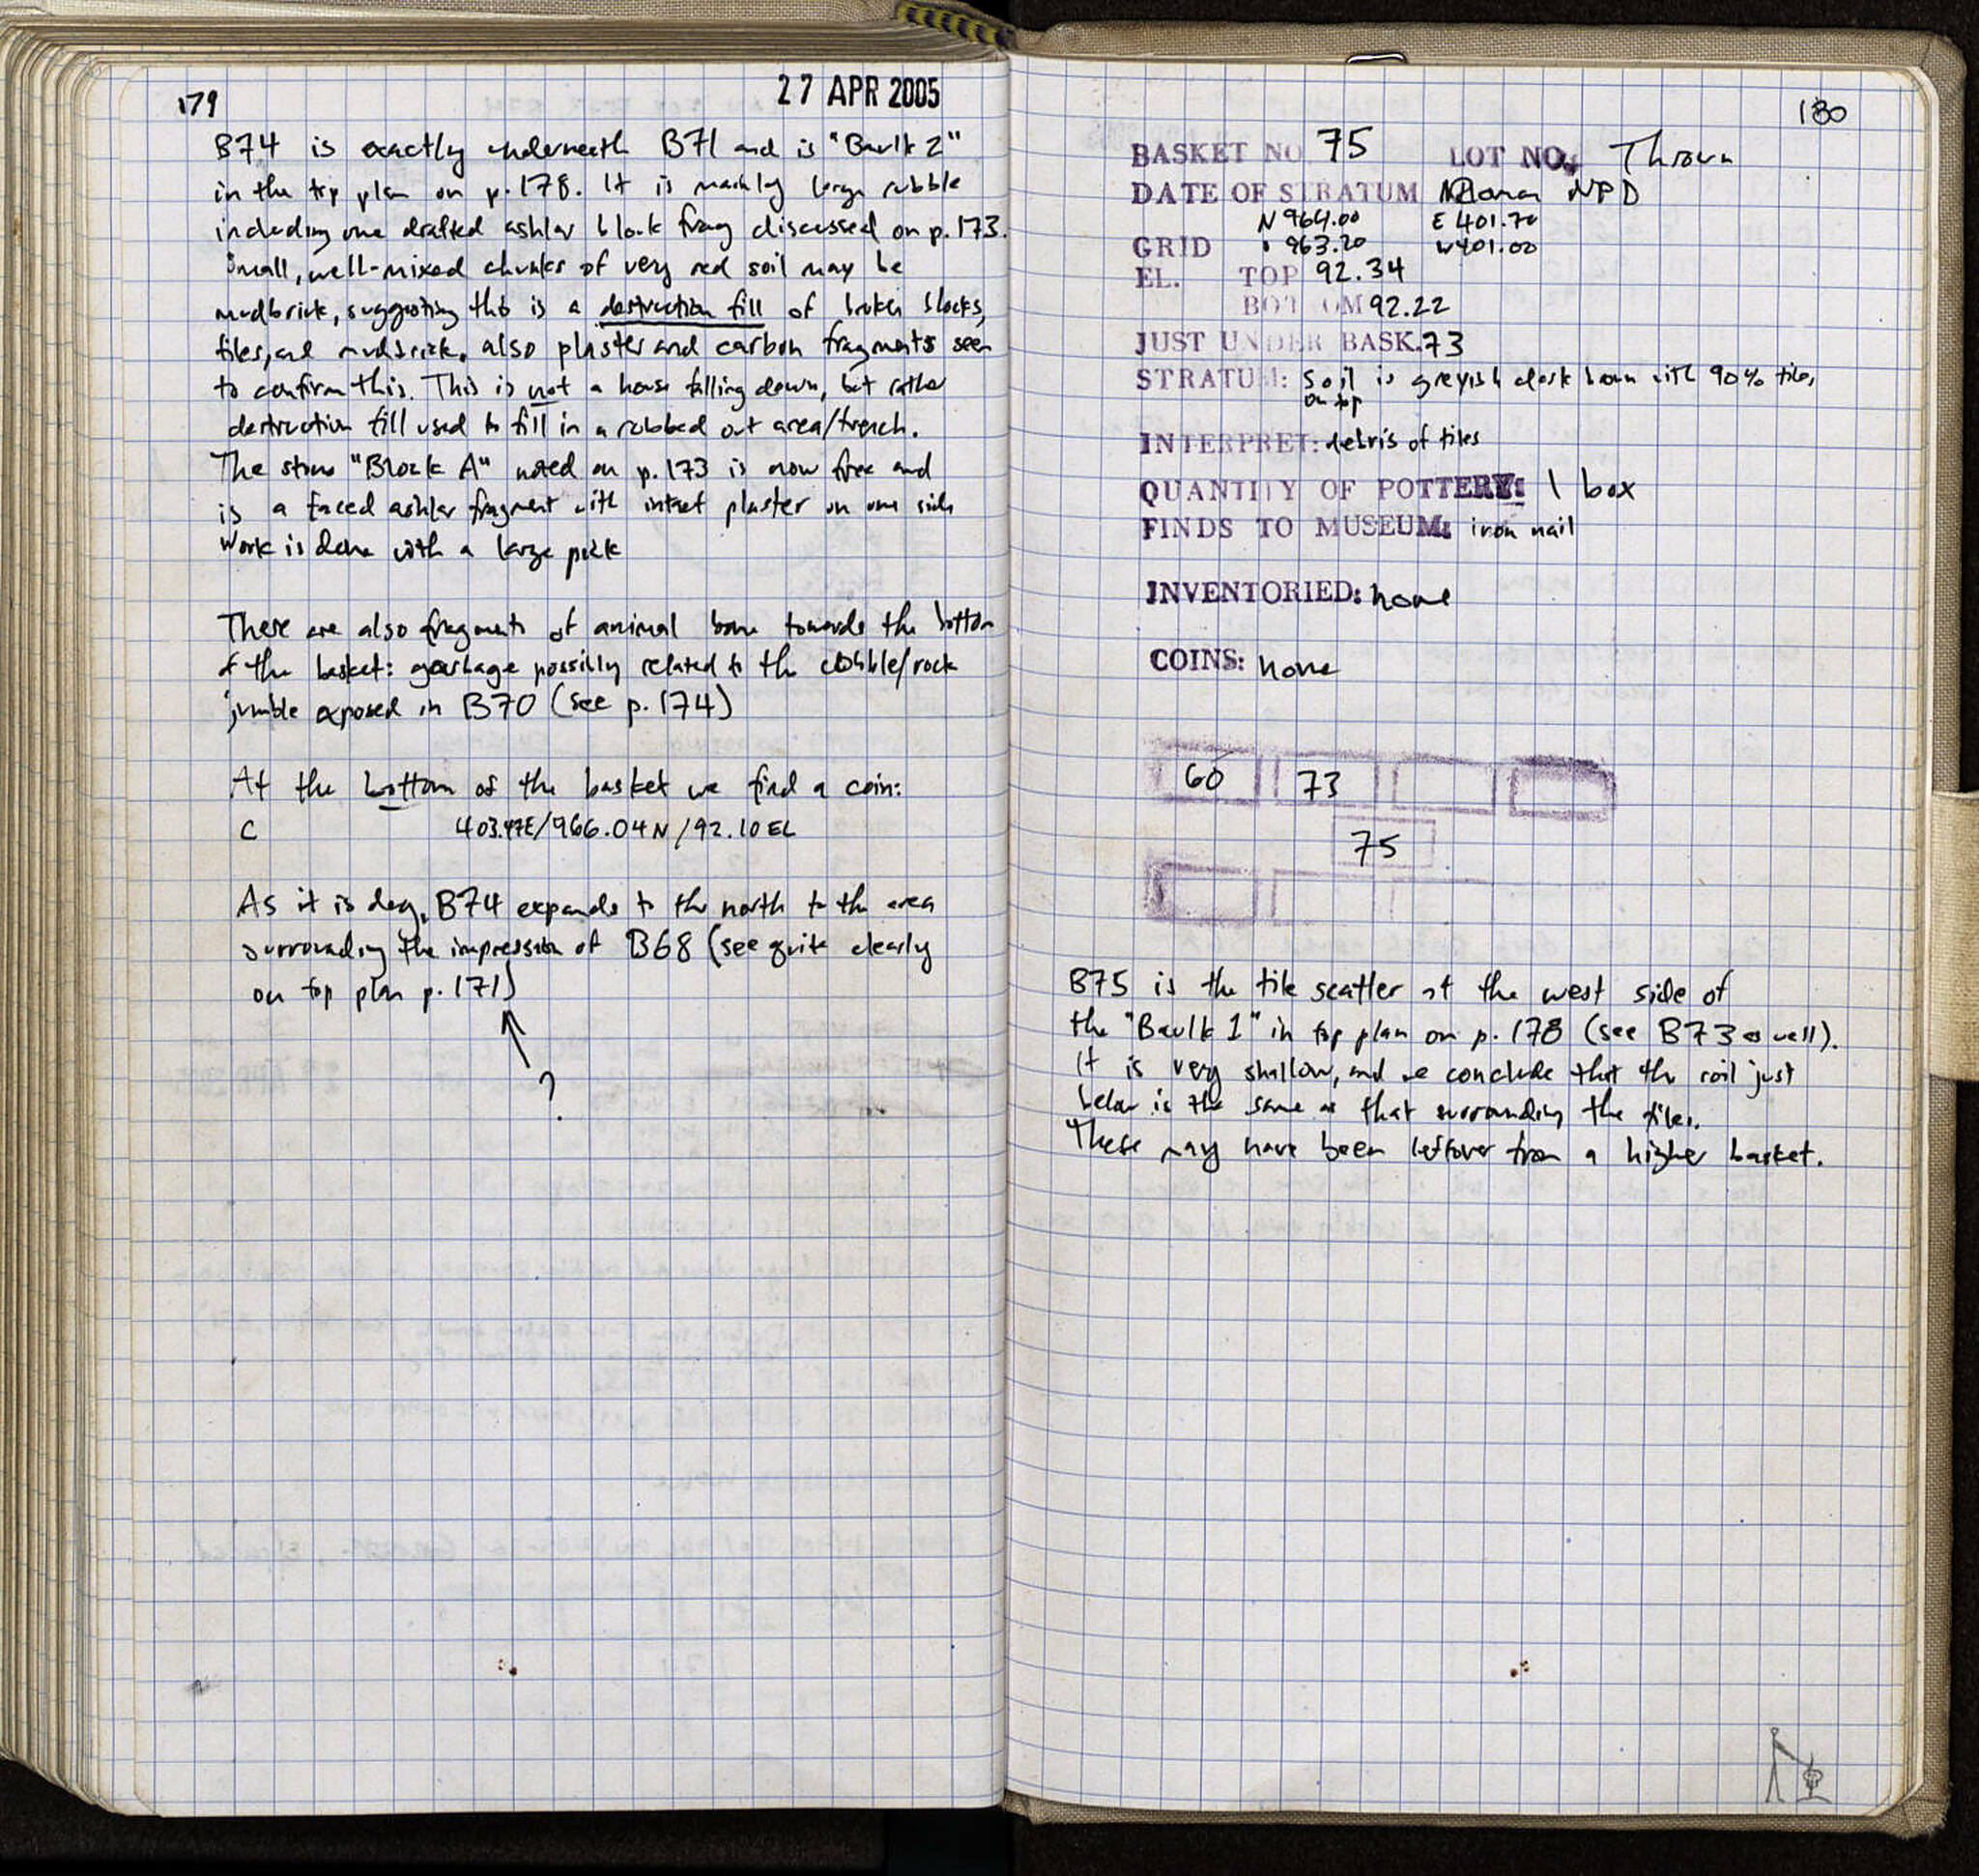 179
27 APR 2005
B74 is exactly underneath B71 and is "Baulk 2"
in the top plan on p. 178. It is mainly large rubble
including one drafted ashlar block frag discussed on p. 173.
Small, well-mixed chunks of very red soil may be
mudbrick, suggesting this is a destruction fill of broken blocks,
tiles, and mudbrick. also plaster and carbon fragments seem
to confirm this. This is not a house falling down, but rather
destruction fill used to fill in a robbed out area/trench.
The stone "Block A" noted on p. 173 is now free and
is a faced ashlar fragment with intact plaster on one side
Work is done with a large pick
There are also fragments of animal bone towards the bottom
of the basket: garbage possibly related to the cobble/rock
jumble exposed in B70 (see p. 174)
At the bottom of the basket we find a coin:
C 403.47E/966.04N/92.10EL
As it is dug, B74 expands to the north to the area
surrounding the impression of B68 (see quite clearly
on top plan p. 171)
?
180
BASKET NO 75 LOT NO. Thrown
DATE OF STRATUM Roman NPD
N 964.00 E 401.70
GRID 963.20 W401.00
EL. TOP 92.34
BOTTOM 92.22
JUST UNDER BASK. 73
STRATUM: Soil is greyish dark brown with 90% tiles
on top
INTERPRET: debris of tiles
QUANTITY OF POTTERY: 1 box
FINDS TO MUSEUM: iron nail
INVENTORIED: none
COINS: none
60 73
75
B75 is the tile scatter at the west side of
the "Baulk 1" in top plan on p. 178 (see B73 as well).
It is very shallow, and we conclude that the soil just
below is the same as that surrounding the tiles.
These may have been leftover from a higher basket.